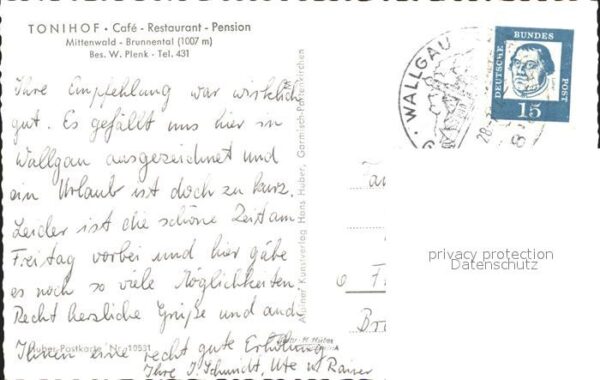 TONIHOF · Café - Restaurant - Pension
Mittenwald - Brunnental (1007 m)
Bes. W. Plenk - Tel. 431
Ihre Empfehlung war wirklich
gut. Es gefällt uns hier in
Wallgau ausgezeichnet und
ein Urlaub ist doch zu kurz.
Leider ist die schöne Zeit am
Freitag vorbei und hier gäbe
es noch so viele Möglichkeiten.
Recht herzliche Grüße und auch
Ihnen eine recht gute Erholung
Ihre J. Schmidt, Ute u. Rainer
Huber-Postkarte Nr. 10531
Alpiner Kunstverlag Hans Huber, Garmisch-Partenkirchen
WALLGAU
28.
DEUTSCHE BUNDES POST
15
privacy protection
Datenschutz